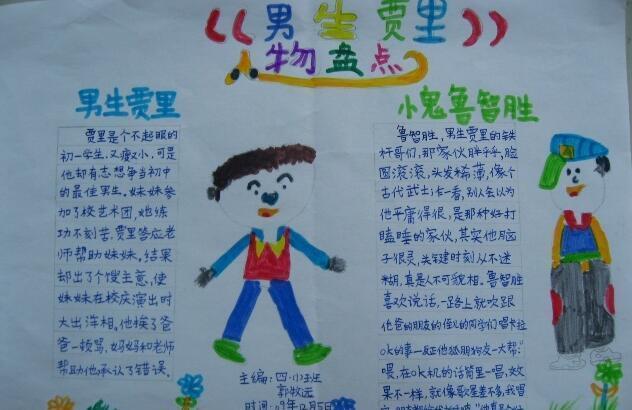 《男生贾里》
人物盘点
男生贾里
贾里是个不起眼的
初一学生.又瘦又小,可是
他却有志想争当初中
的最佳男生.妹妹参
加了校艺术团,她练
功不刻苦.贾里答应老
师帮助妹妹,结果
却出了个馊主意,使
妹妹在校庆演出时
大出洋相.他挨了爸
爸一顿骂,妈妈和老师
帮助他,承认了错误.
主编:四.小班
时间:09年12月5日
小鬼鲁智胜
鲁智胜,男生贾里的铁
杆哥们,那家伙胖乎乎,脸
圆滚滚,头发稀薄,像个
古代武士.乍一看,别人会以为
他平庸得很,是那种好打
瞌睡的家伙,其实他脑
子很灵,关键时刻从不迷
糊,真是人不可貌相.鲁智胜
喜欢说话,一路上就吹跟
他爸的朋友的侄儿的同学们唱卡拉
OK的事—反正他狐朋狗友一大帮:“
喂,在OK机的话筒里一唱,效
果不一样,就像歌星差不多,我唱